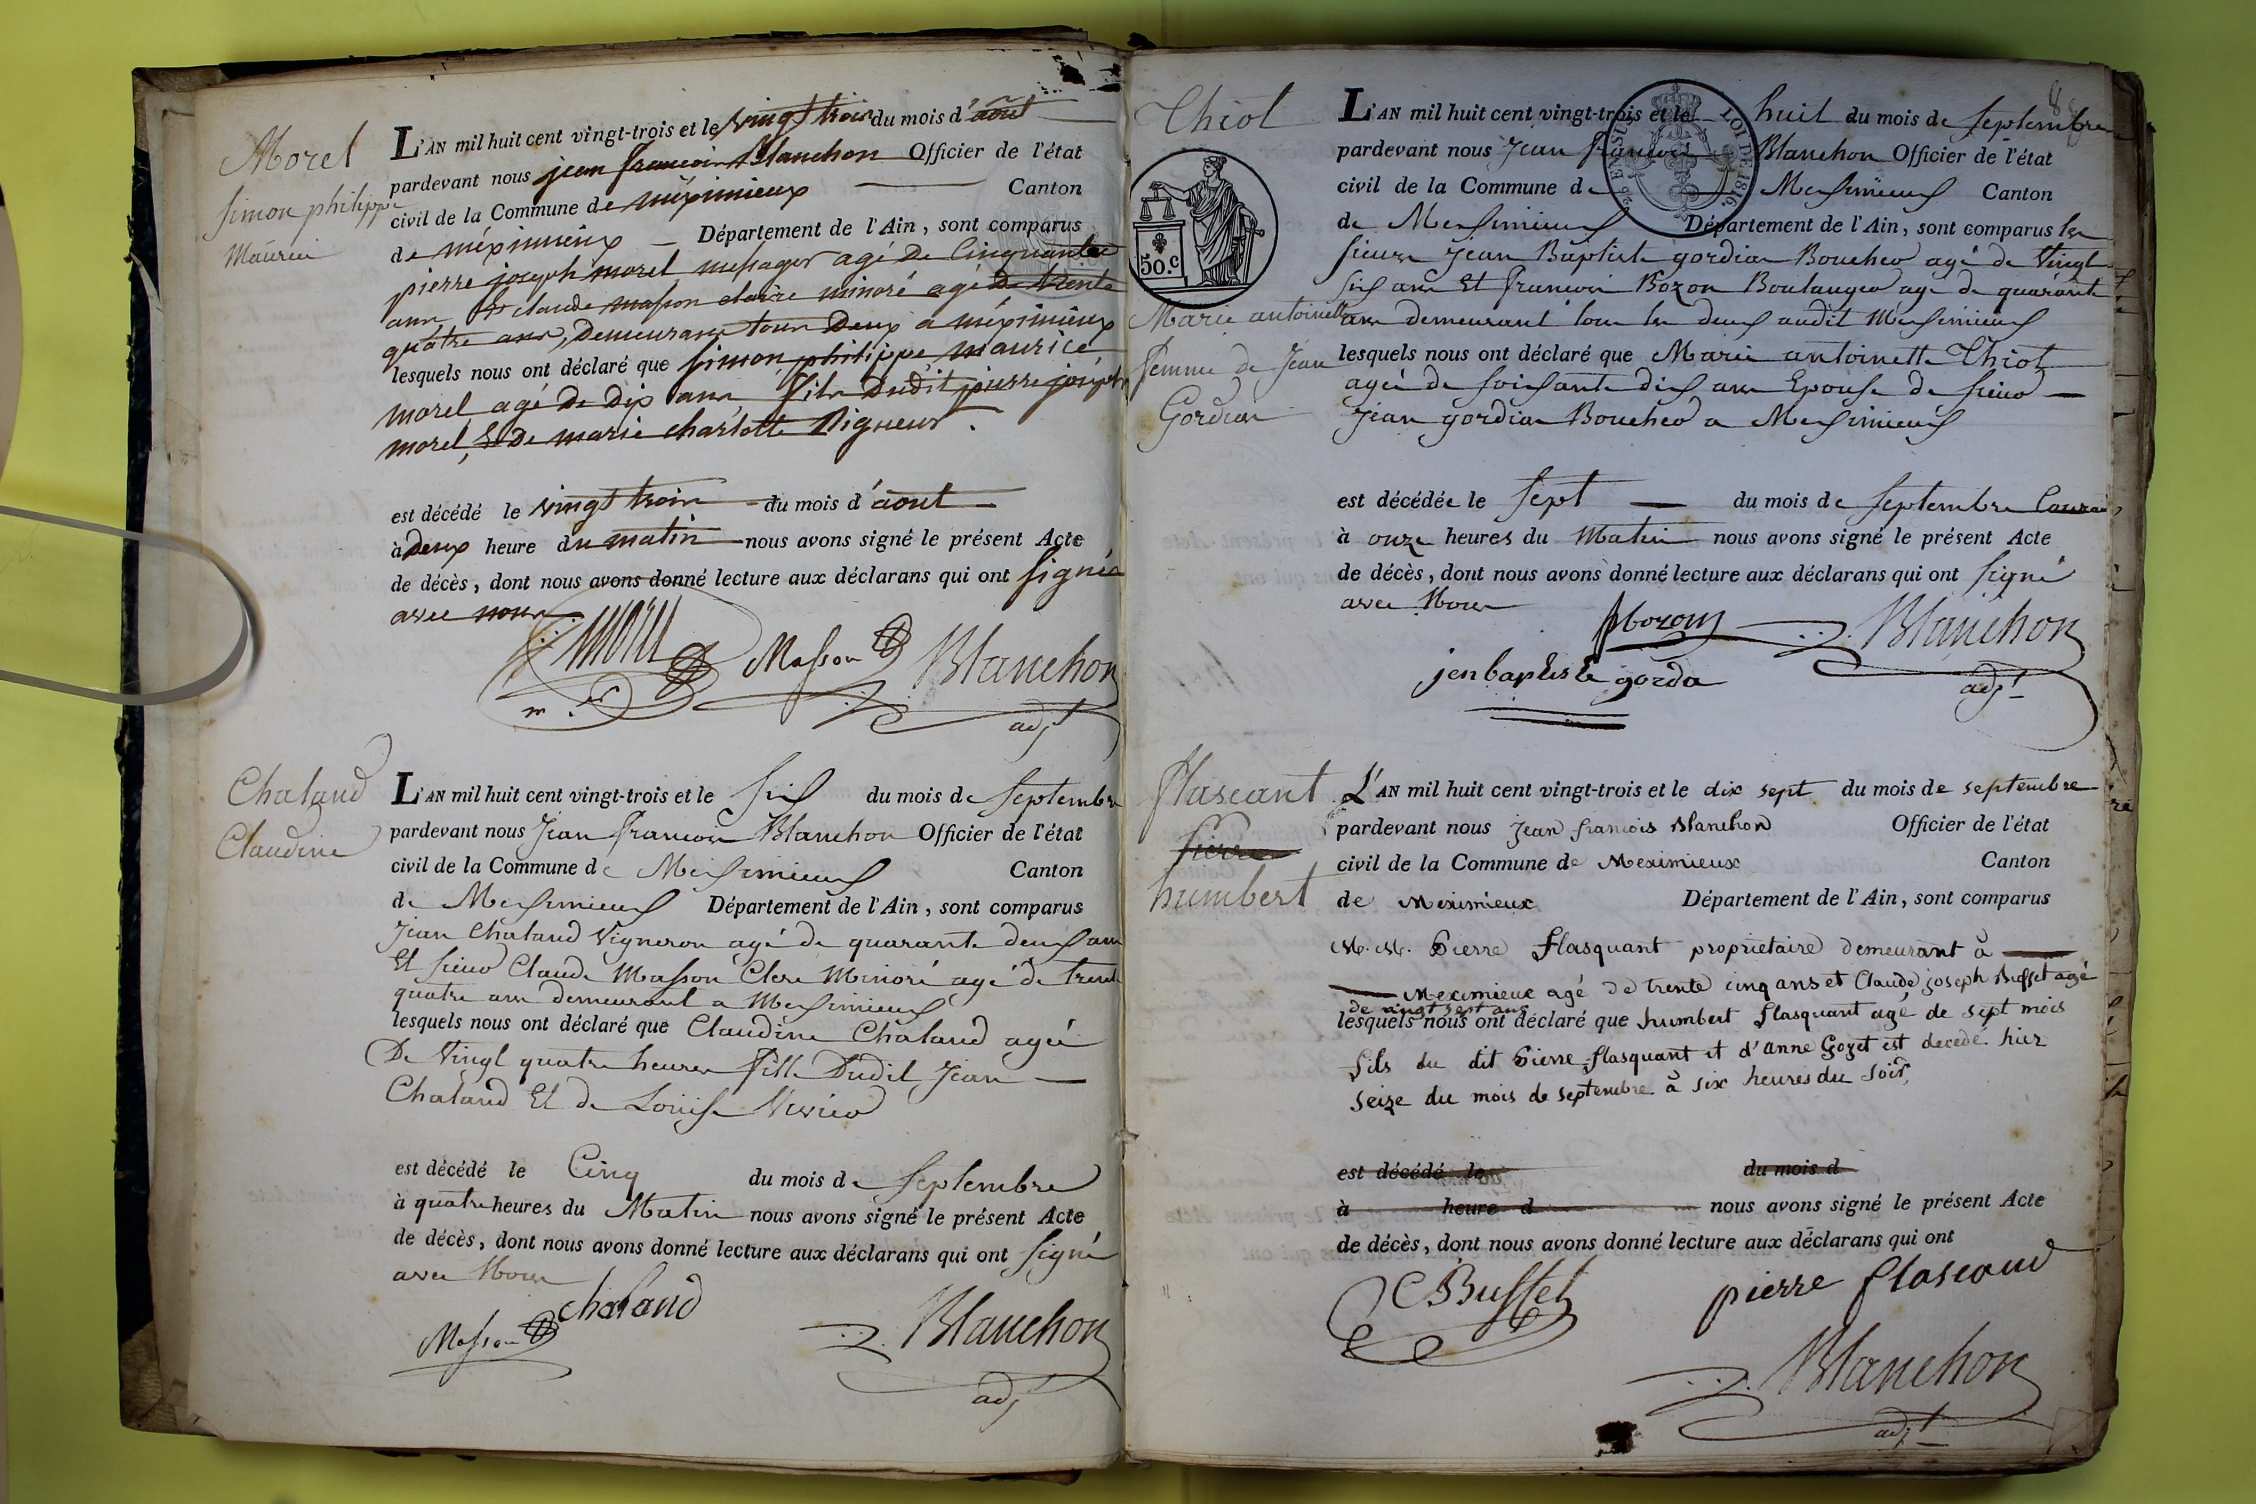 Morel
Simon philippe
Maurice
L'AN mil huit cent vingt-trois et le vingt trois du mois d'août
pardevant nous jean francois Blanchon Officier de l'état
civil de la Commune de méximieux Canton
de méximieux Département de l'Ain, sont comparus
pierre joseph morel messager agé de Cinquante
ans, Et claude masson clairc minoré agé de trente
quatre ans, Demeurans tous Deux a méximieux
lesquels nous ont déclaré que simon philippe maurice
morel agé de dix ans fils dudit pierre joseph
morel, Et De marie charlotte Vigneux.
est décédé le vingt trois du mois d'août
à deux heure du matin nous avons signé le présent Acte
de décès, dont nous avons donné lecture aux déclarans qui ont signée
avec nous
Morel Masson Blanchon
adjt
Chaland
Claudine
L'AN mil huit cent vingt-trois et le six du mois de Septembre
pardevant nous Jean francois Blanchon Officier de l'état
civil de la Commune de Meximieux Canton
de Meximieux Département de l'Ain, sont comparus
Jean Chaland Vigneron agé de quarante deux ans
Et sieur Claude Masson Clerc Minoré agé de trente
quatre ans demeurant a Meximieux
lesquels nous ont déclaré que Claudine Chaland agée
De Vingt quatre heures fille Dudit Jean
Chaland Et de Louise
est décédé le Cinq du mois de Septembre
à quatre heures du Matin nous avons signé le présent Acte
de décès, dont nous avons donné lecture aux déclarans qui ont signé
avec Nous
Masson chaland Blanchon
adjt
Thiot
50.c
Marie antoinette
femme de Jean
Gordian
LOI DE 1816.
L'AN mil huit cent vingt-trois et le huit du mois de Septembre
pardevant nous Jean francois Blanchon Officier de l'état
civil de la Commune de Meximieux Canton
de Meximieux Département de l'Ain, sont comparus les
sieurs Jean Baptiste gordian Boucher agé de Vingt
six ans Et francois Bozon Boulanger agé de quarante
ans demeurant tous les deux audit Meximieux
lesquels nous ont déclaré que Marie antoinette Thiot
agée de soixante dix ans Epouse de sieur
Jean gordian Boucher a Meximieux
est décédée le sept du mois de Septembre Courant
à onze heures du Matin nous avons signé le présent Acte
de décès, dont nous avons donné lecture aux déclarans qui ont signé
avec Nous
fbozon Blanchon
jenbaptiste gorda adjt
flascant
Pierre
humbert
L'AN mil huit cent vingt-trois et le dix sept du mois de septembre
pardevant nous jean francois Blanchon Officier de l'état
civil de la Commune de Meximieux Canton
de Meximieux Département de l'Ain, sont comparus
M.M. Pierre flasquant proprietaire demeurant à
Meximieux agé de trente cinq ans et Claude joseph Buffet agé
de vingt sept ans
lesquels nous ont déclaré que humbert flasquant agé de sept mois
fils du dit Pierre flasquant et d'anne Gozet est decedé hier
seize du mois de septembre à six heures du soir,
est décédé le du mois d
à heure d nous avons signé le présent Acte
de décès, dont nous avons donné lecture aux déclarans qui ont
CBuffet pierre flascaud
Blanchon
adjt